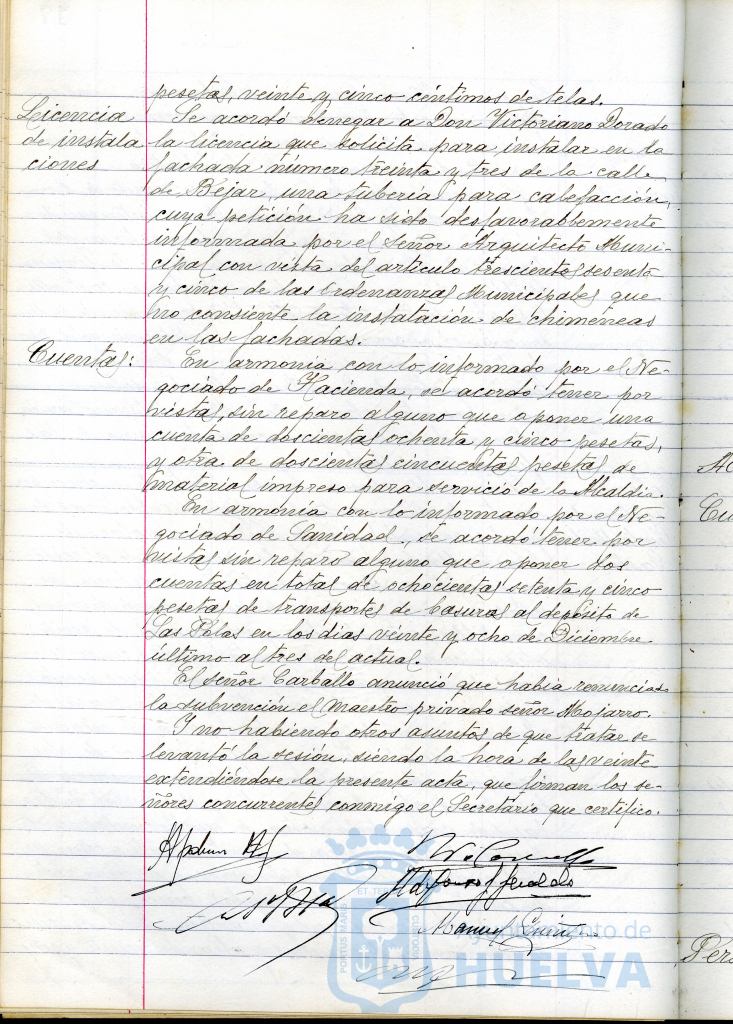 pesetas, veinte y cinco céntimos de telas.
Licencia
de instala
ciones
Se acordó denegar a Don Victoriano Dorado
la licencia que solicita para instalar en la
fachada número treinta y tres de la calle
de Béjar, una tubería para calefacción,
cuya petición ha sido desfavorablemente
informada por el señor Arquitecto Muni-
cipal con vista del artículo trescientos sesenta
y cinco de las Ordenanzas Municipales que
no consiente la instalación de chimeneas
en las fachadas.
Cuentas:
En armonía con lo informado por el Ne-
gociado de Hacienda, se acordó tener por
vistas, sin reparo alguno que oponer una
cuenta de doscientas ochenta y cinco pesetas,
y otra de doscientas cincuenta pesetas de
material impreso para servicio de la Alcaldía.
En armonía con lo informado por el Ne-
gociado de Sanidad, se acordó tener por
vistas sin reparo alguno que oponer dos
cuentas en total de ochocientas setenta y cinco
pesetas de transportes de basuras al depósito de
Las Polas en los días veinte y ocho de Diciembre
último al tres del actual.
El señor Carballo anunció que había renunciado
la subvención el maestro privado señor Mojarro.
Y no habiendo otros asuntos de que tratar se
levantó la sesión, siendo la hora de las veinte
extendiéndose la presente acta, que firman los se-
ñores concurrentes conmigo el Secretario que certifico.
Manuel
Ayuntamiento de
HUELVA
PORTUS MARIS
ET TERRAE
CUSTODIA
Cu
Pers